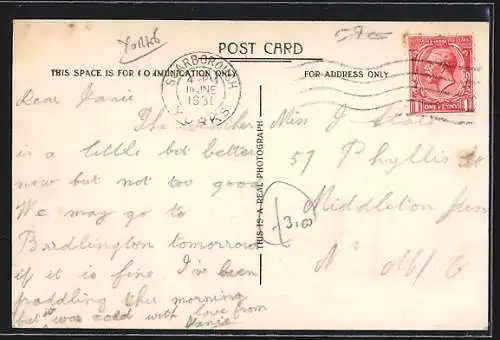 YORKS
POST CARD
THIS SPACE IS FOR COMMUNICATION ONLY
FOR ADDRESS ONLY
SCARBOROUGH
JNE
1931
YORKS
1 ONE PENNY 1
Dear Janie
The weather
is a little bit better
now but not too good
We may go to
Bridlington tomorrow
if it is fine. I've been
paddling this morning
but it was cold with love from
THIS IS A REAL PHOTOGRAPH
Miss J
57 Phyllis
Middleton Junc
Nr M/C
3.00